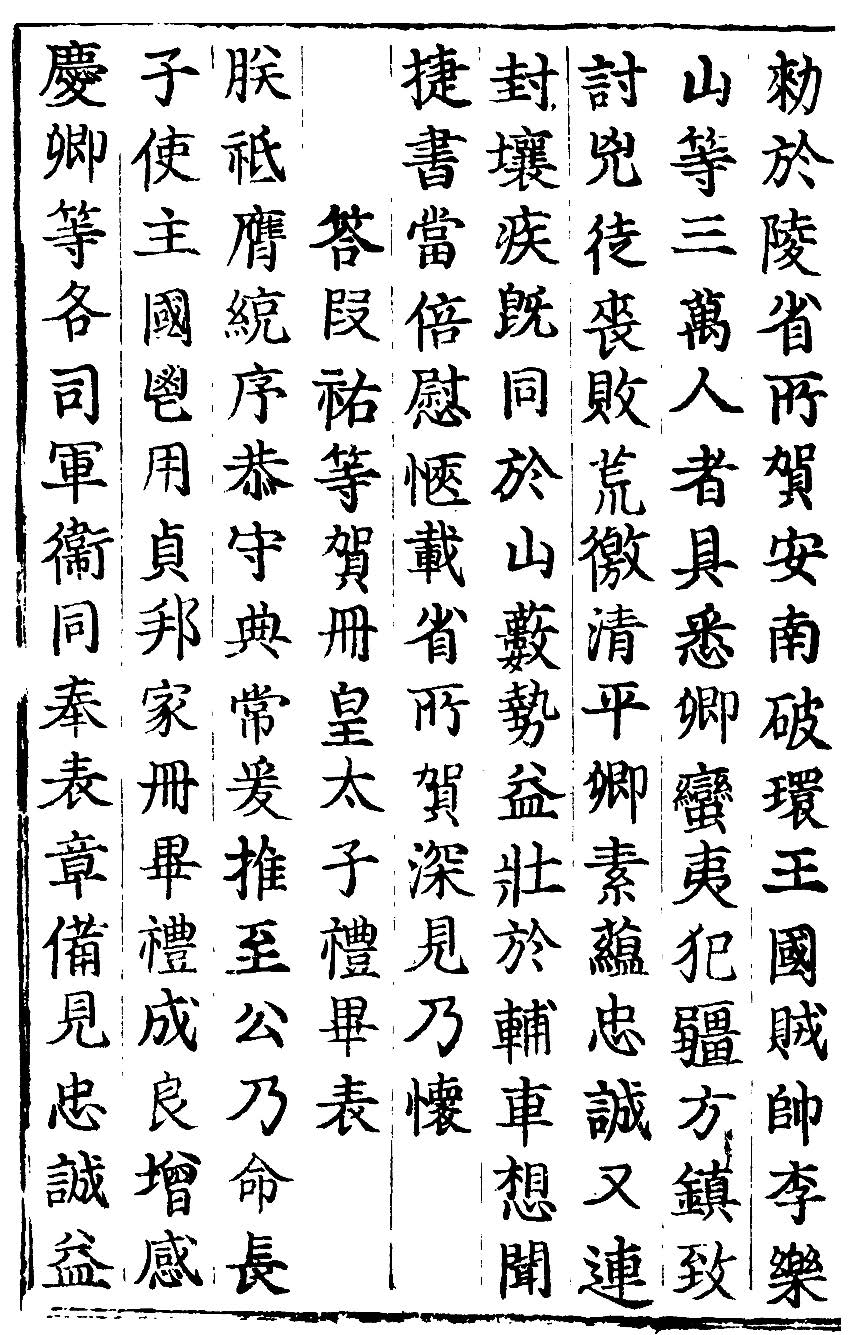 勑於陵省所賀安南破環王國賊帥李樂
山等三萬人者具悉卿蠻夷犯疆方鎮致
討兇徒喪敗荒徼清平卿素蘊忠誠又連
封壤疾既同於山藪勢益壯於輔車想聞
捷書當倍慰愜載省所賀深見乃懷
答段祐等賀冊皇太子禮畢表
朕祗膺統序恭守典常爰推至公乃命長
子使主國鬯用貞邦家冊畢禮成良增感
慶卿等各司軍衞同奉表章備見忠誠益